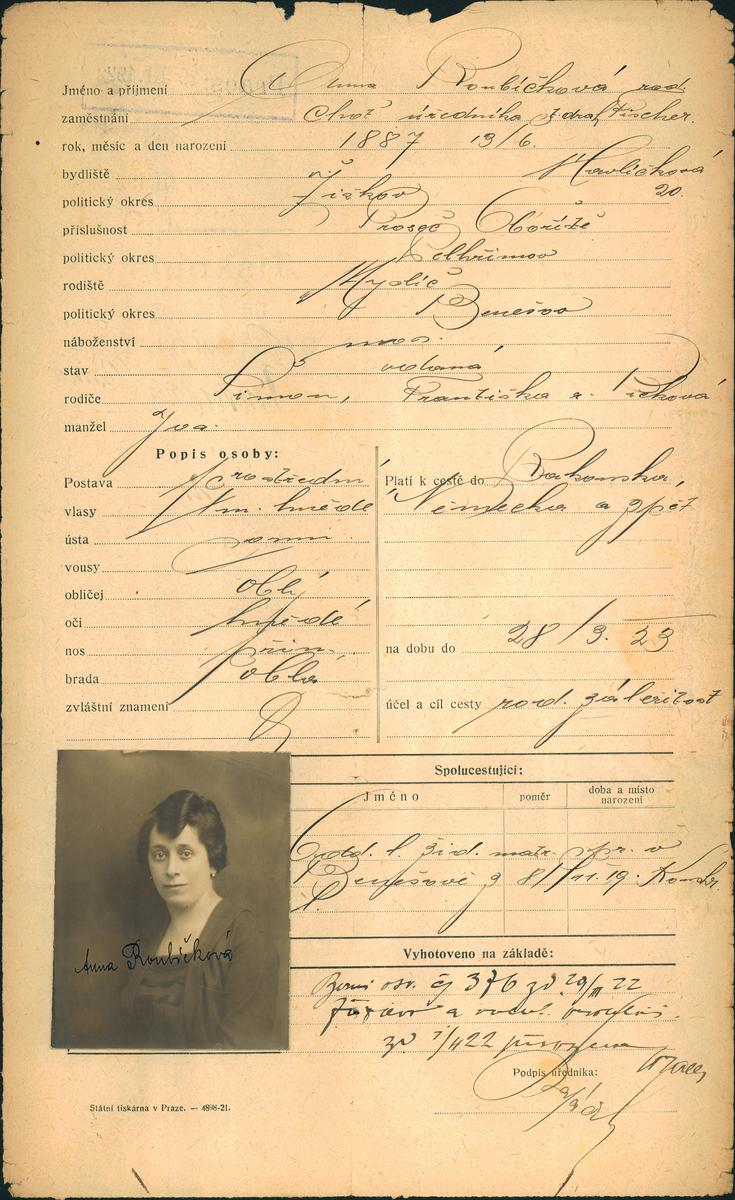 Jméno a příjmení Anna Roubíčková rod.
zaměstnání choť úředníka Fischer.
rok, měsíc a den narození 1887 13/6.
bydliště Havlíčková
politický okres Žižkov 20.
příslušnost Proseč Obořiště
politický okres Pelhřimov
rodiště Myslíč
politický okres Benešov
náboženství mos.
stav vdaná
rodiče Šimon, Františka r. Picková
manžel
Popis osoby:
Postava prostřední
vlasy tm. hnědé
ústa
vousy
obličej oblý
oči hnědé
nos přim.
brada oblá
zvláštní znamení
Platí k cestě do Rakouska,
Německa a zpět
na dobu do 28/3. 23
účel a cíl cesty rod. záležitost
Spolucestující:
Jméno poměr doba a místo narození
odd. l. žid. matr. spr. v
Benešově z 8/11.19.
Anna Roubíčková
Vyhotoveno na základě:
osv. čj 376 zd 29/III 22
a
zd 7/4 22
Podpis úředníka:
Státní tiskárna v Praze. — 4898-21.